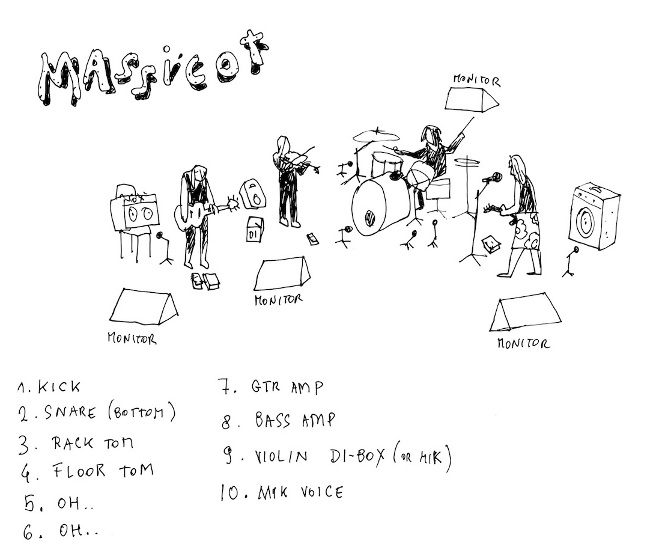 MASSICOT
MONITOR
VOX
DI
MONITOR
MONITOR
MONITOR
1. KICK
2. SNARE (BOTTOM)
3. RACK TOM
4. FLOOR TOM
5. OH..
6. OH..
7. GTR AMP
8. BASS AMP
9. VIOLIN DI-BOX (OR MIK)
10. MIK VOICE